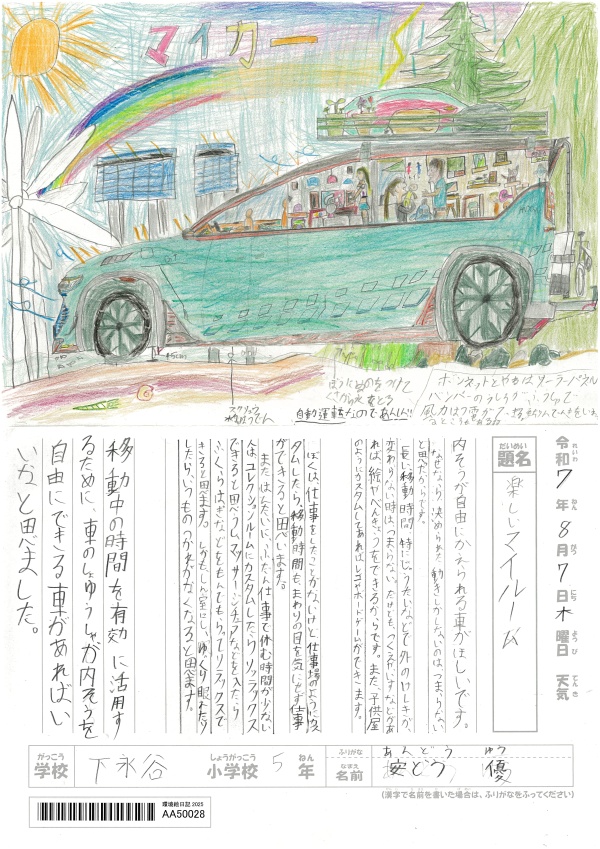 マイカー
スクリュウ
水力はつでん
自動運転なのであんしん!!
ボンネットとやねはソーラーパネル
れいわ
令和7年8月7日木曜日 天気
ねん がつ にち ようび てんき
だいめい
題名
楽しいマイルーム
内そうが自由にかえられる車がほしいです。
なぜなら、決められた動きしかしないのは、つまらない
と思ったからです。
長い移動時間、特にじゅうたいなどで外のけしきが
変わらない時は、つまらない。だけども、つくえやいすなどがあ
れば、絵やべんきょうをできるからです。また、子供屋
のようにカスタムしてあればレゴやボードゲームができます。
ぼくは、仕事をしたことがないけど仕事場のようにカス
タムしたら、移動時間も、まわりの目を気にせず仕事
ができると思います。
またはしたいに、ふだん仕事で休む時間が少ない
人は、コレクションルームにカスタムしたら、リラックス
できると思うし、マッサージチェアなどを入れたら
ふくらはぎなどをもんでもらってリラックスで
きると思います。しかも、しん室にし、ゆっくり眠れたり
したら、いつものつかれがなくなると思います。
移動中の時間を有効に活用す
るために、車のしょゆうしゃが内そうを
自由にできる車があればい
いなと思いました。
がっこう
学校
下永谷
しょうがっこう
小学校
5
ねん
年
ふりがな
あんどう ゆう
なまえ
名前
安どう 優
(漢字で名前を書いた場合は、ふりがなをふってください)
環境絵日記 2025
AA50028